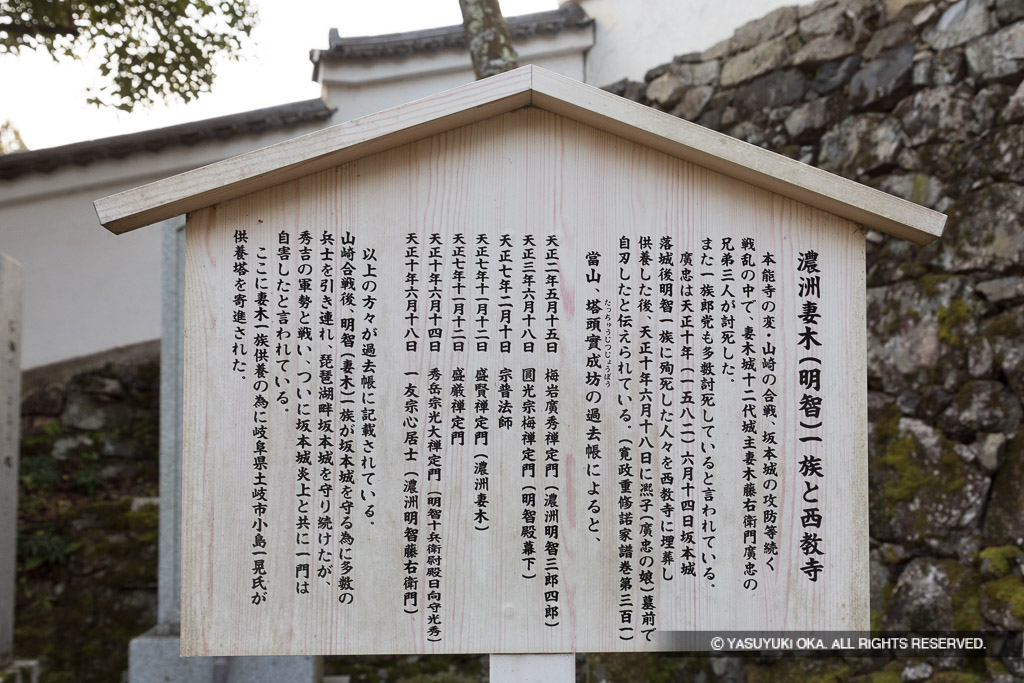 濃洲妻木(明智)一族と西教寺
本能寺の変・山崎の合戦、坂本城の攻防等続く
戦乱の中で、妻木城十二代城主妻木藤右衛門廣忠の
兄弟三人が討死した。
また一族郎党も多数討死していると言われている。
廣忠は天正十年(一五八二)六月十四日坂本城
落城後明智一族に殉死した人々を西教寺に埋葬し
供養した後、天正十年六月十八日に凞子(廣忠の娘)墓前で
自刃したと伝えられている。(寛政重修諸家譜巻第三百一)
當山、塔頭實成坊の過去帳によると、
たっちゅうじつじょうぼう
天正二年五月十五日 梅岩廣秀禅定門(濃洲明智三郎四郎)
天正三年六月十八日 圓光宗梅禅定門(明智殿幕下)
天正七年二月十日 宗普法師
天正七年十一月十二日 盛賢禅定門(濃洲妻木)
天正七年十一月十二日 盛厳禅定門
天正十年六月十四日 秀岳宗光大禅定門(明智十兵衛尉殿日向守光秀)
天正十年六月十八日 一友宗心居士(濃洲明智藤右衛門)
以上の方々が過去帳に記載されている。
山崎合戦後、明智(妻木)一族が坂本城を守る為に多数の
兵士を引き連れ、琵琶湖畔坂本城を守り続けたが、
秀吉の軍勢と戦い、ついに坂本城炎上と共に一門は
自害したと言われている。
ここに妻木一族供養の為に岐阜県土岐市小島一晃氏が
供養塔を寄進された。
© YASUYUKI OKA. ALL RIGHTS RESERVED.